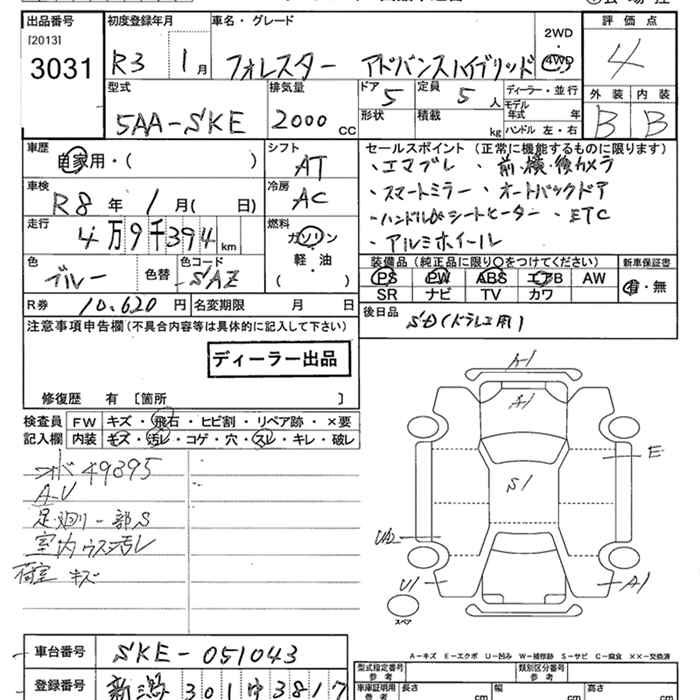 出品番号
[2013]
3031
初度登録年月
R3 1月
車名・グレード
フォレスター アドバンスハイブリッド
2WD
4WD
評価点
4
外装 内装
B B
型式
5AA-SKE
排気量
2000 cc
ドア 5
形状
定員 5 人
積載 kg
ディーラー・並行
モデル年式 年式
ハンドル 左・右
車歴
自家用・( )
シフト
AT
車検
R8年 1月( 日)
冷房
AC
走行
4万9千394 km
燃料
ガソリン
軽・油
( )
色
ブルー
色替
色コード
SAZ
R券 10.620 円
名変期限 月 日
セールスポイント (正常に機能するものに限ります)
・エマブレ ・前・横・後カメラ
・スマートミラー ・オートバックドア
・ハンドル&シートヒーター ・ETC
・アルミホイール
装備品 (純正品に限り○をつけてください)
PS PW ABS エアB AW
SR ナビ TV カワ
新車保証書
有・無
後日品
SD(ドラレコ用)
注意事項申告欄(不具合内容等は具体的に記入して下さい)
ディーラー出品
修復歴 有 [箇所 ]
検査員記入欄
FW キズ・飛石・ヒビ割・リペア跡・×要
内装 キズ・汚レ・コゲ・穴・スレ・キレ・破レ
オド 49395
A-U
足廻り一部S
室内ウス汚レ
荷室 キズ
A1
A1
S1
E
UA2
U1
A1
スペア
A-キズ E-エクボ U-凹み W-補修跡 S-サビ C-腐食 ××-交換済
車台番号
SKE-051043
登録番号
新潟 301 3817
型式指定番号 参考
類別区分番号 参考
車庫証明用 参考
長さ cm
幅 cm
高さ cm